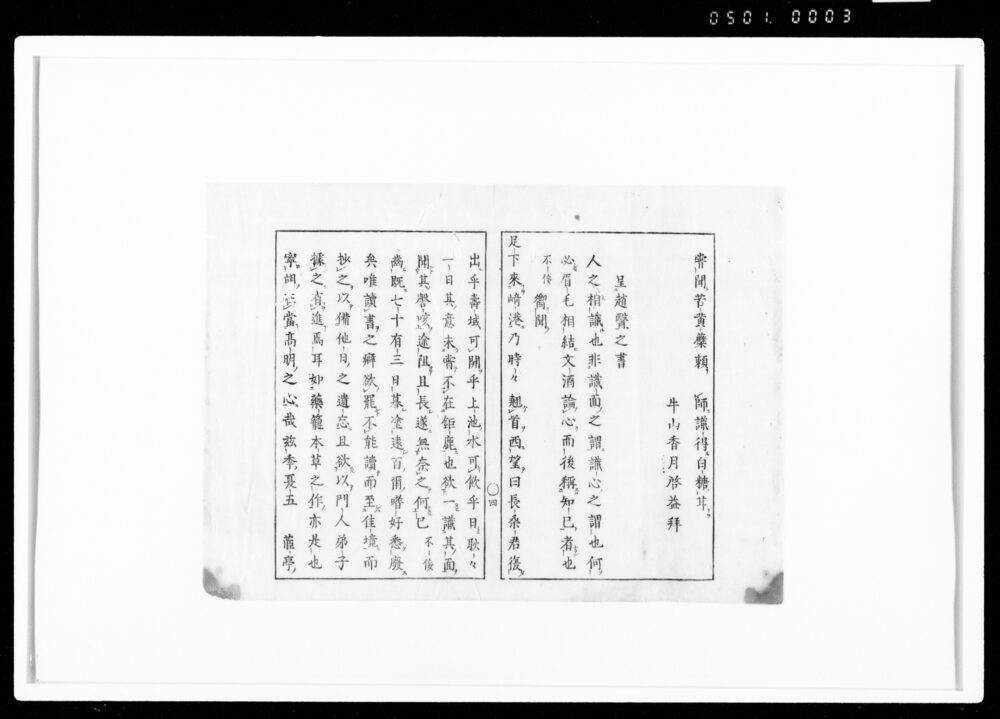 0501.0003
嘗聞苦黄蘗頼　師識得白糖耳
牛山香月啓益拜
呈趙醫之書
人之相識也非識面之謂識心之謂也何
必眉毛相結文酒論心而後稱知已者也
不佞嚮聞
足下來崎港乃時々翹首西望曰長桑君復
四
出乎壽域可開乎上池水可飲乎日耿々
一日其意未嘗不在鉅鹿也欲一識其面
聞其謦咳途阻且長遂無奈之何已不佞
齒既七十有三日暮塗遠百爾嗜好悉廢
矣唯讀書之癖欲罷不能讀而至佳境而
抄之以備他日之遺忘且欲以門人弟子
據之有進焉耳如藥籠本草之作亦是也
寧詞當高明之心哉玆季夏五　亭